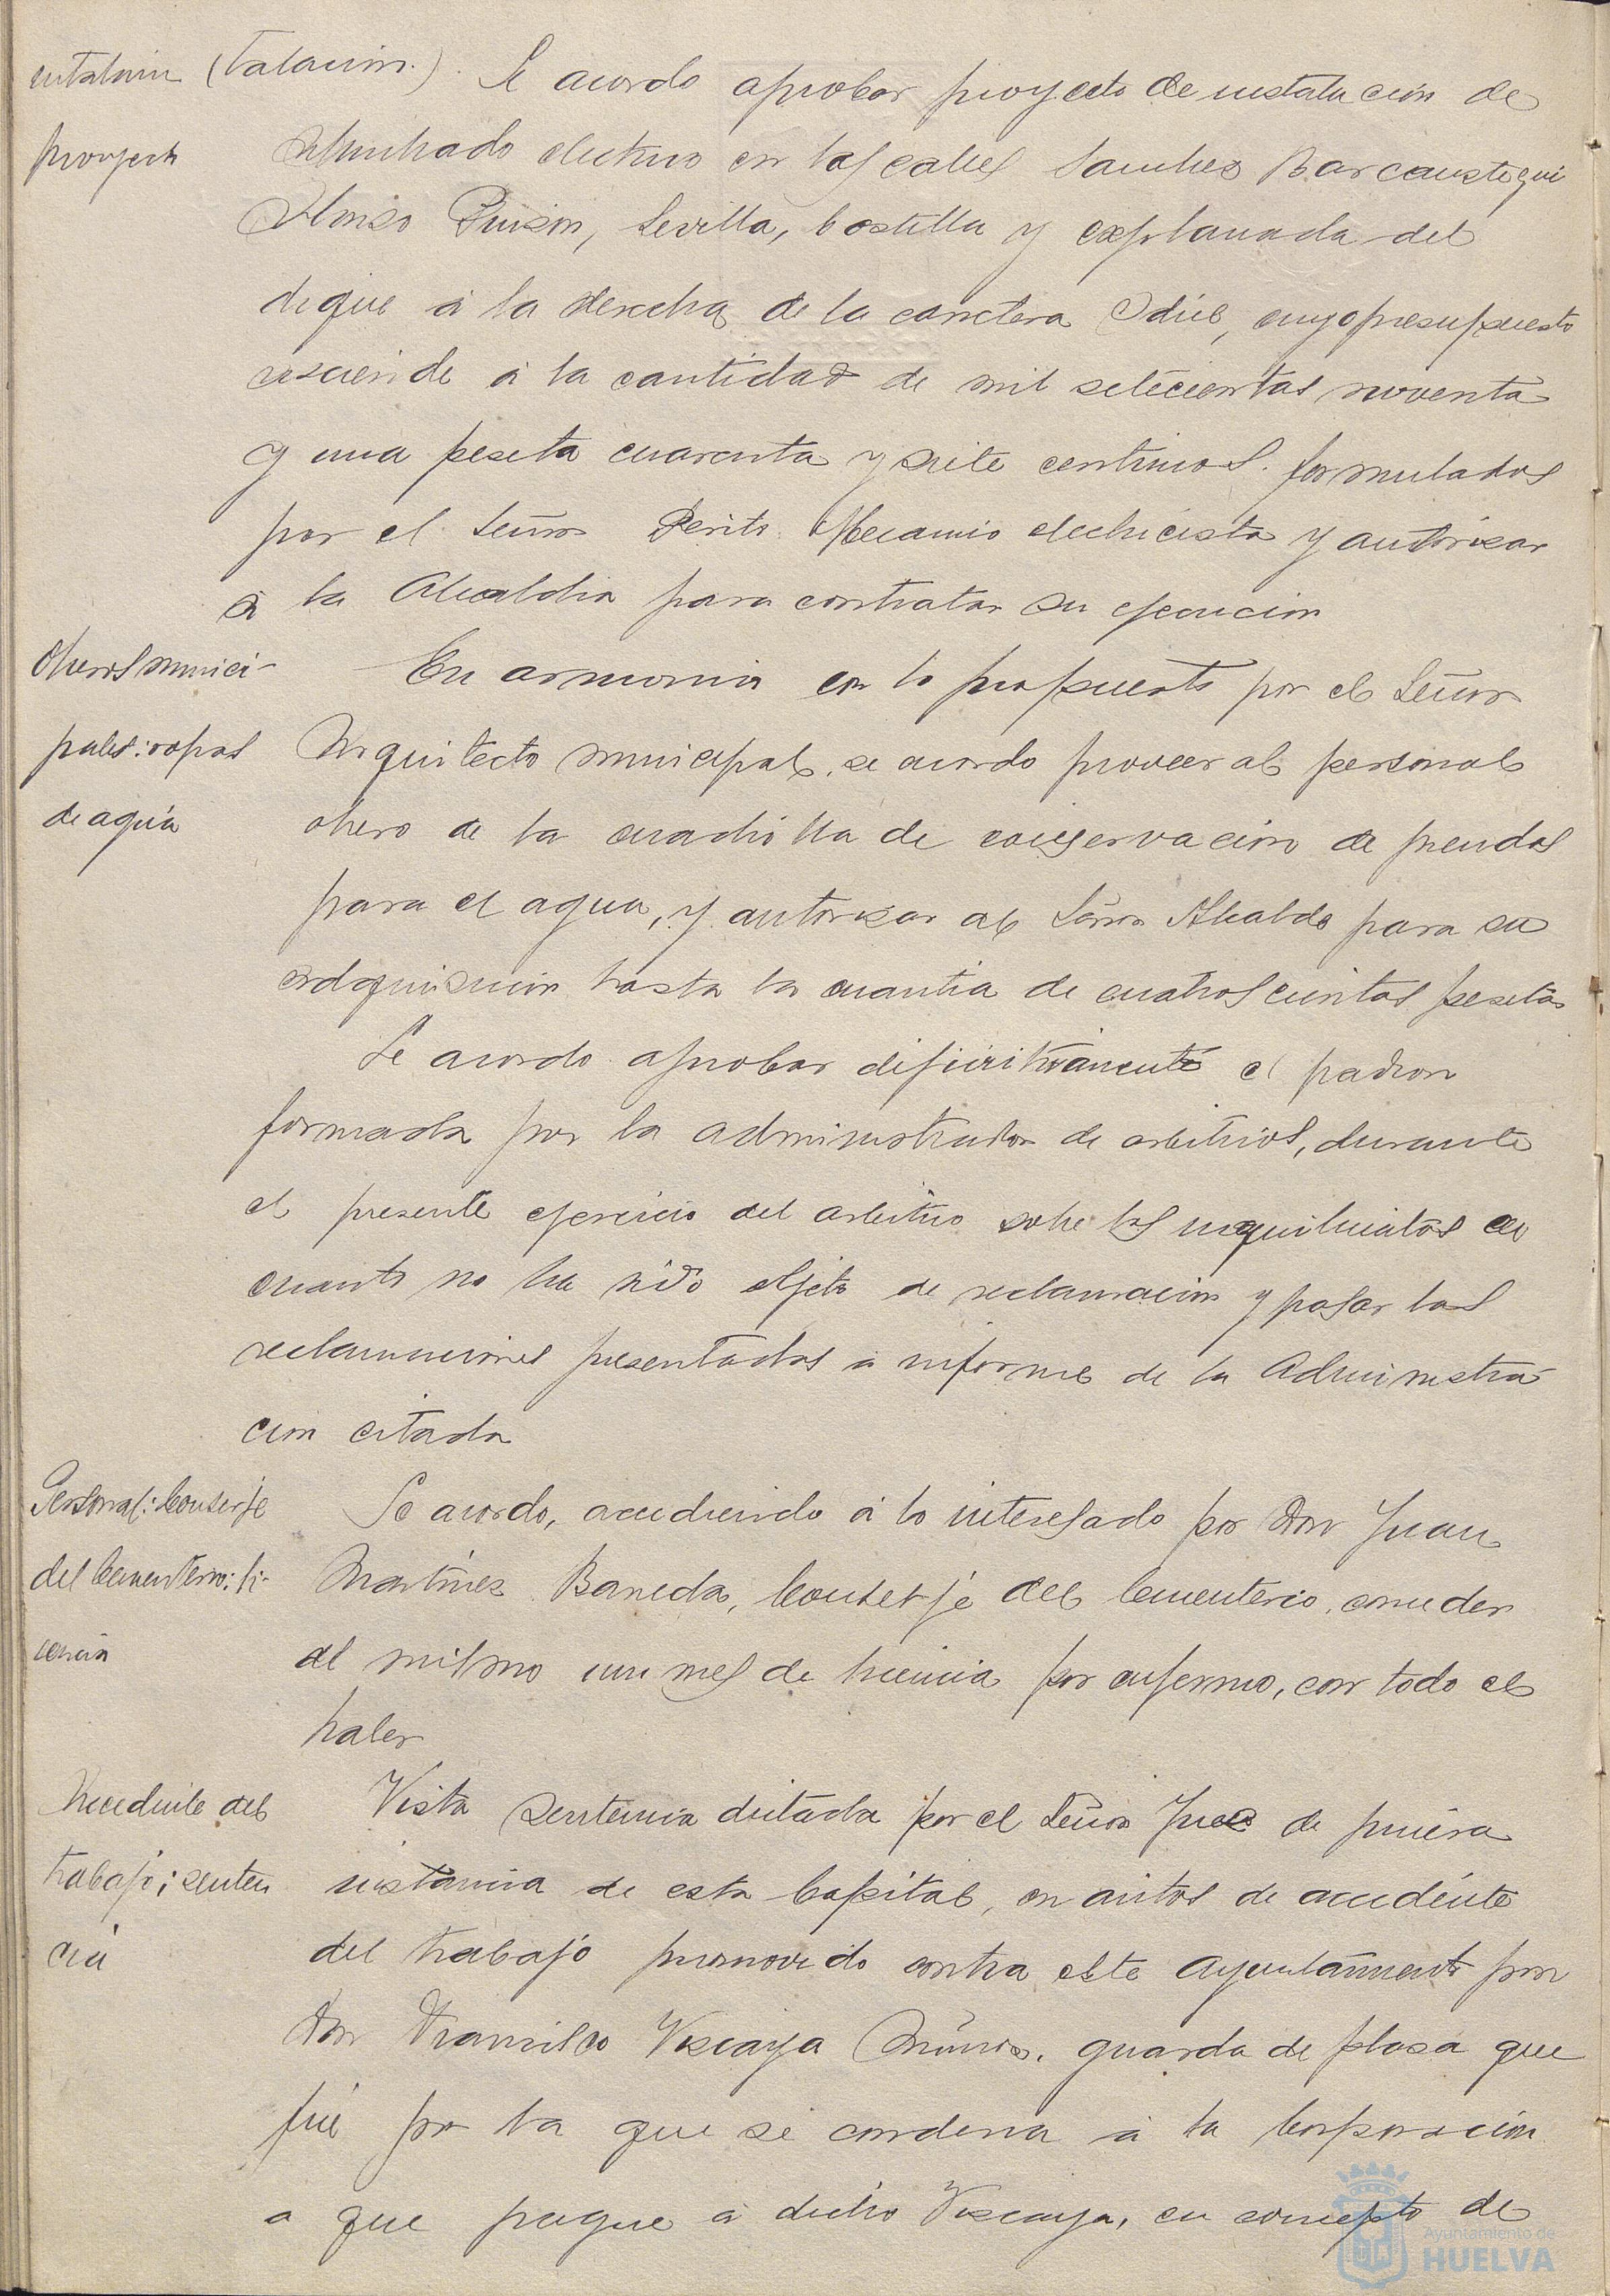 instalación (talacion.). Se acordo aprobar proyecto de instalacion de
proyecto
alumbrado electrico en las calles Sanchez Barcaiztegui
Alonso Pinzon, Sevilla, Costilla y explanada del
dique á la derecha de la carretera Odiel, cuyo presupuesto
asciende á la cantidad de mil setecientas noventa
y una peseta cuarenta y siete centimos. formulados
por el Señor Perito Mecanico electricista y autorizar
á la Alcaldia para contratar su ejecucion
Obreros munici-
pales: ropas
de agua
En armonia con lo propuesto por el Señor
Arquitecto municipal, se acordo proveer al personal
obrero de la cuadrilla de conservacion de prendas
para el agua, y autorizar al Señor Alcalde para su
adquisicion hasta la cuantia de cuatroscientas pesetas
Se acordo aprobar definitivamente el padron
formada por la administrador de arbitrios, durante
el presente ejercicio del arbitrio sobre los inquilinatos en
cuanto no ha sido objeto de reclamacion y pasar las
reclamaciones presentadas á informe de la Administra
cion citada
Personal: Conserje
del Cementerio: li-
cencia
Se acordo, accediendo á lo interesado por don Juan
Martinez Baneda, Conserje del Cementerio, conceder
al mismo un mes de licencia por enfermo, con todo el
haber
Accidente del
trabajo; senten
cia
Vista sentencia dictada por el Señor Juez de primera
instancia de esta Capital, en autos de accidente
del trabajo promovido contra este Ayuntamiento por
don Francisco Vizcaya guarda de plaza que
fué por la que se condena á la Corporación
a que pague á dicho Vizcaya, en concepto de
Ayuntamiento de
HUELVA